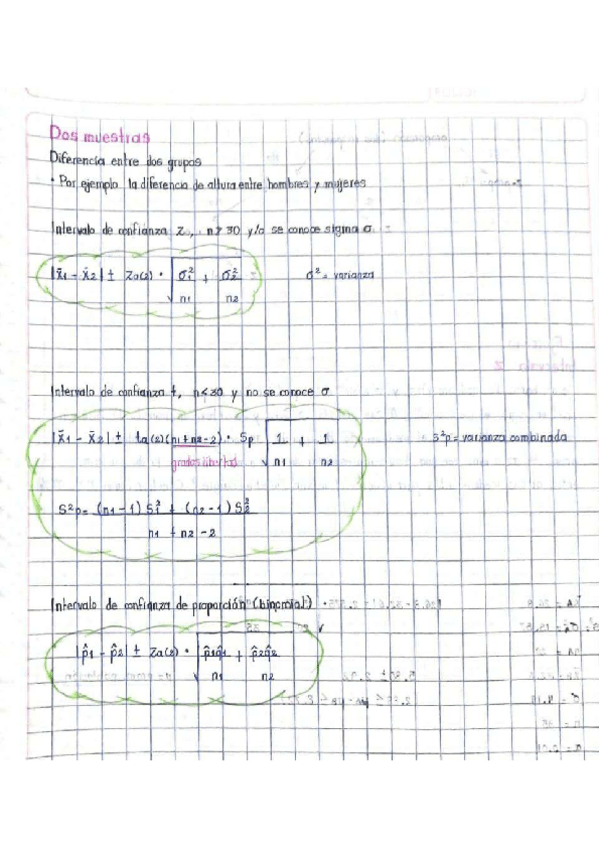 Dos muestras
Diferencia entre dos grupos
• Por ejemplo la diferencia de altura entre hombres y mujeres
Intervalo de confianza Z, n ≥ 30 y/o se conoce sigma σ
|x̄1 - x̄2| ± Zα(2) • √ σ²1/n1 + σ²2/n2    σ² = varianza
Intervalo de confianza t, n < 30 y no se conoce σ
|x̄1 - x̄2| ± tα(2)(n1+n2-2) • Sp √ 1/n1 + 1/n2    S²p = varianza combinada
grados libertad
S²p = (n1-1) S²1 + (n2-1) S²2
n1 + n2 - 2
Intervalo de confianza de proporción (binomial)
|p̂1 - p̂2| ± Zα(2) • √ p̂1q̂1/n1 + p̂2q̂2/n2